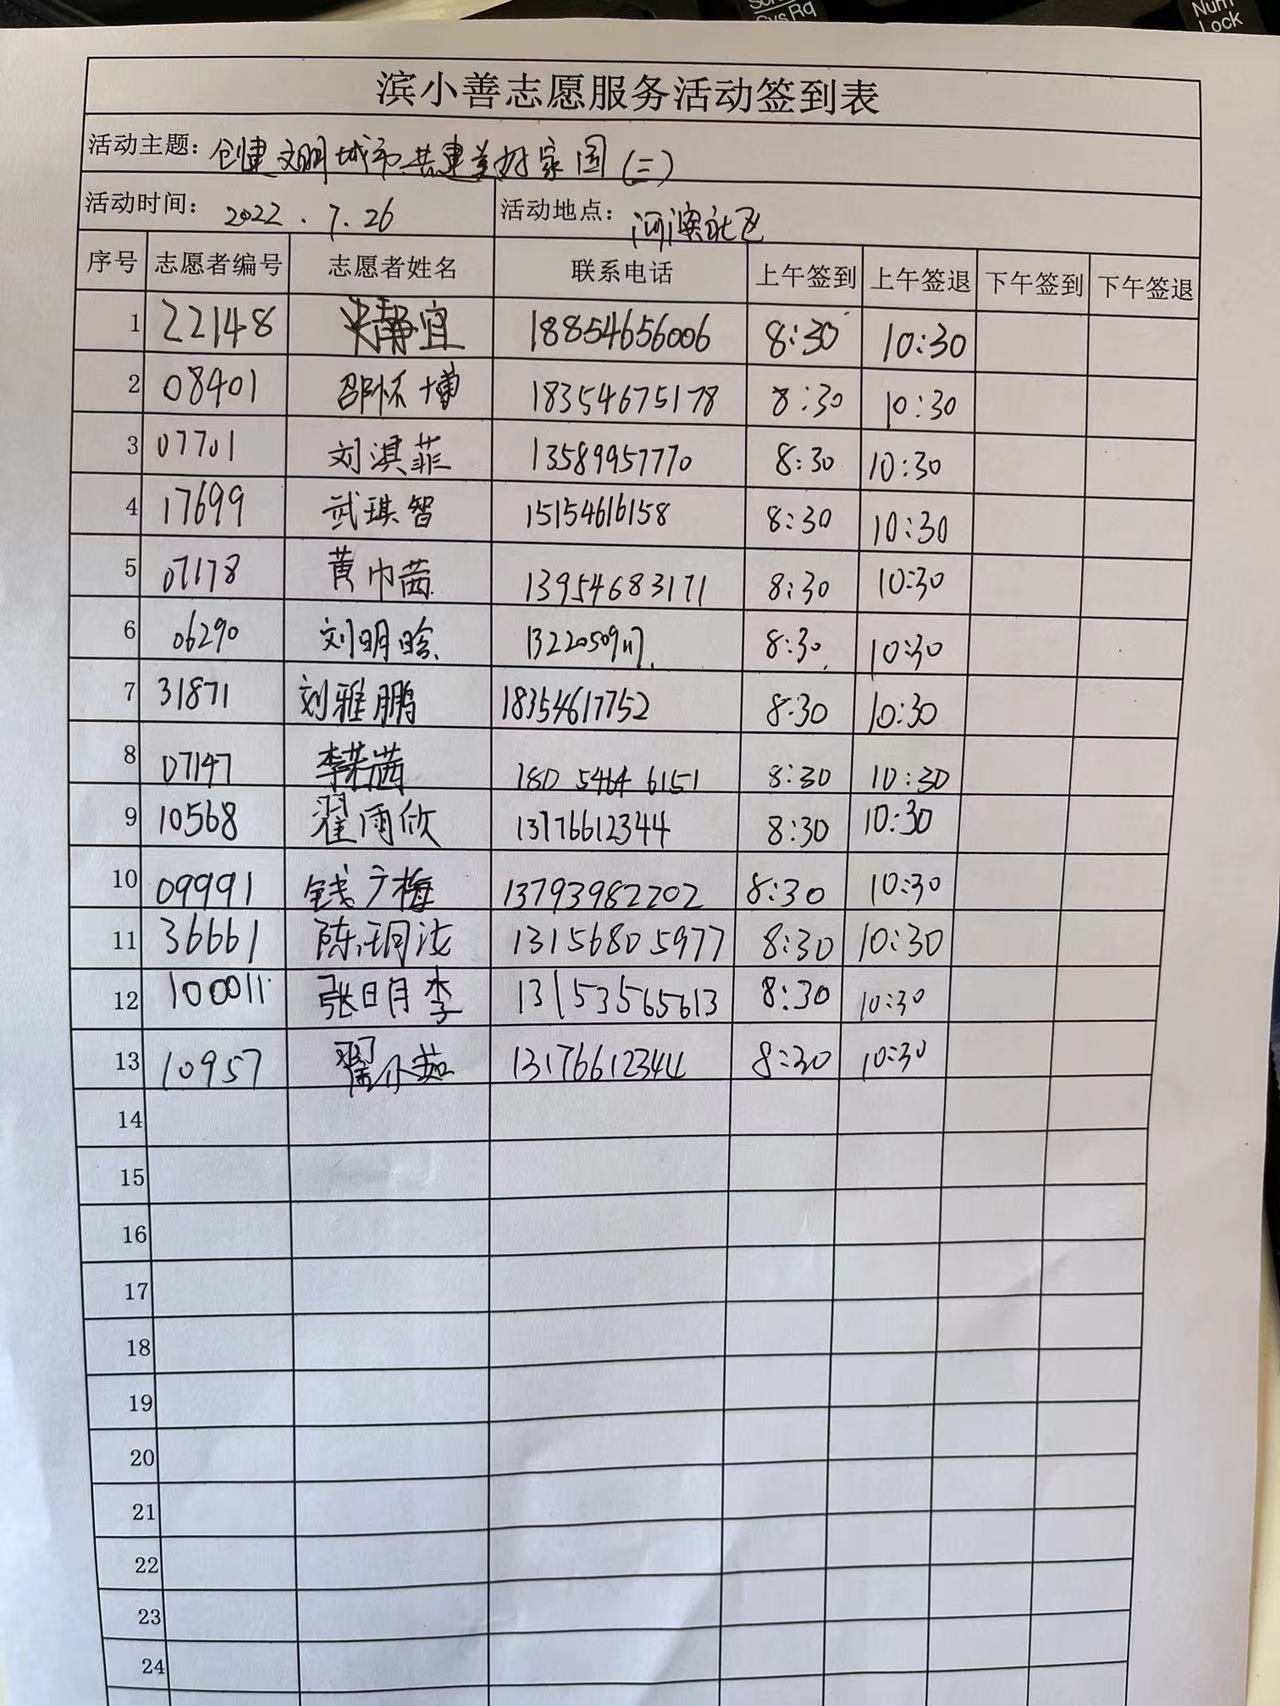 Sys Rq
Num
Lock
滨小善志愿服务活动签到表
活动主题：创建文明城市共建美好家园（二）
活动时间：2022.7.26 活动地点：河滨社区
序号 志愿者编号 志愿者姓名 联系电话 上午签到 上午签退 下午签到 下午签退
1 22148 静宜 18854656006 8:30 10:30
2 08401 邵怀博 18354675178 8:30 10:30
3 07701 刘淇菲 13589957770 8:30 10:30
4 17699 武琪智 15154616158 8:30 10:30
5 07178 黄巾茜 13954683171 8:30 10:30
6 06290 刘明晗 8:30 10:30
7 31871 刘雅鹏 18354617752 8:30 10:30
8 07147 李若茜 180 5464 6151 8:30 10:30
9 10568 翟雨欣 13176612344 8:30 10:30
10 09991 钱广梅 13793982202 8:30 10:30
11 36661 陈玥汝 13156805977 8:30 10:30
12 100011 张明李 13153565613 8:30 10:30
13 10957 翟小茹 13176612344 8:30 10:30
14
15
16
17
18
19
20
21
22
23
24